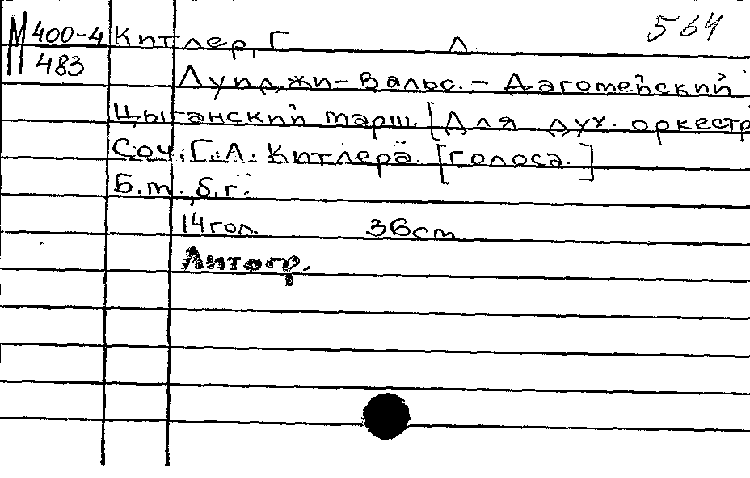 М 400-4 Китлер, Г Л 564
483 Луиджи-Вальс. - Дагомейский
Цыганский марш. [Для дух. оркестр
Соч. Г.Л. Китлера. [голоса.]
Б.м., б.г.
14 гол. 36 cm
Литогр.